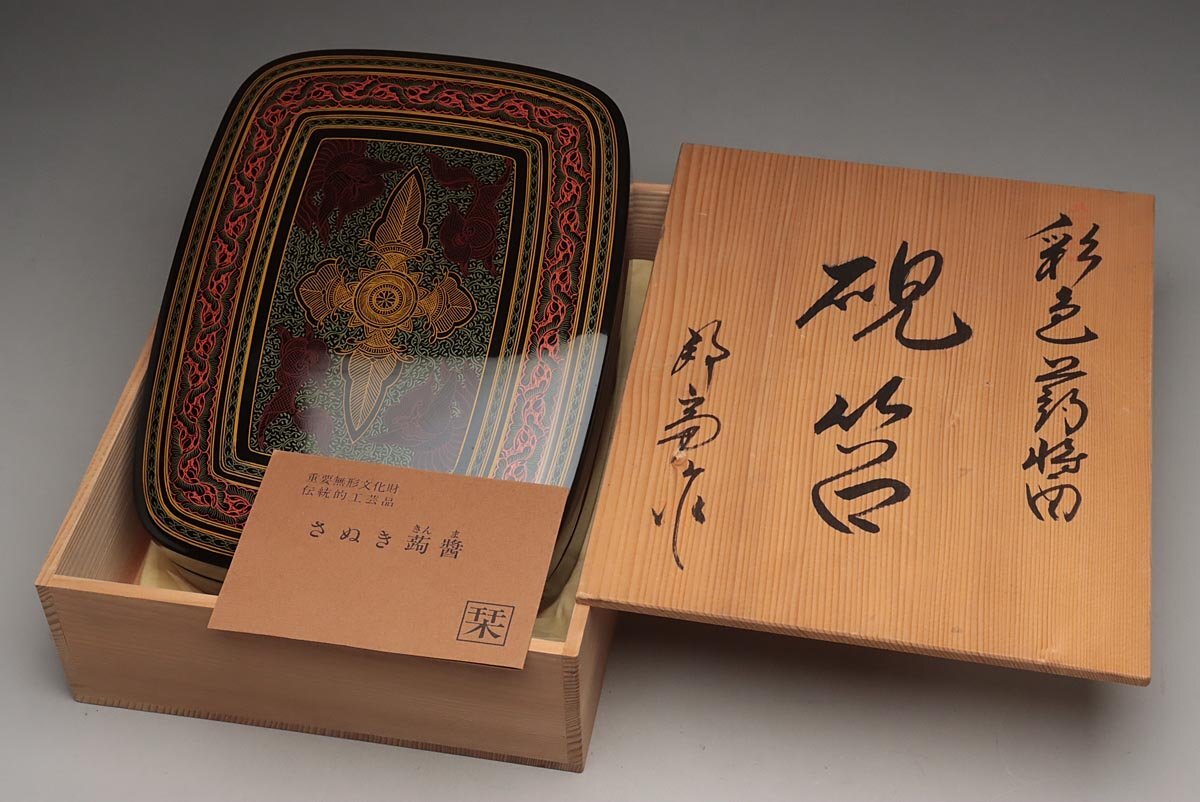 彩色蒟醤
硯筥
重要無形文化財
伝統的工芸品
きん ま
さぬき蒟醬
栞